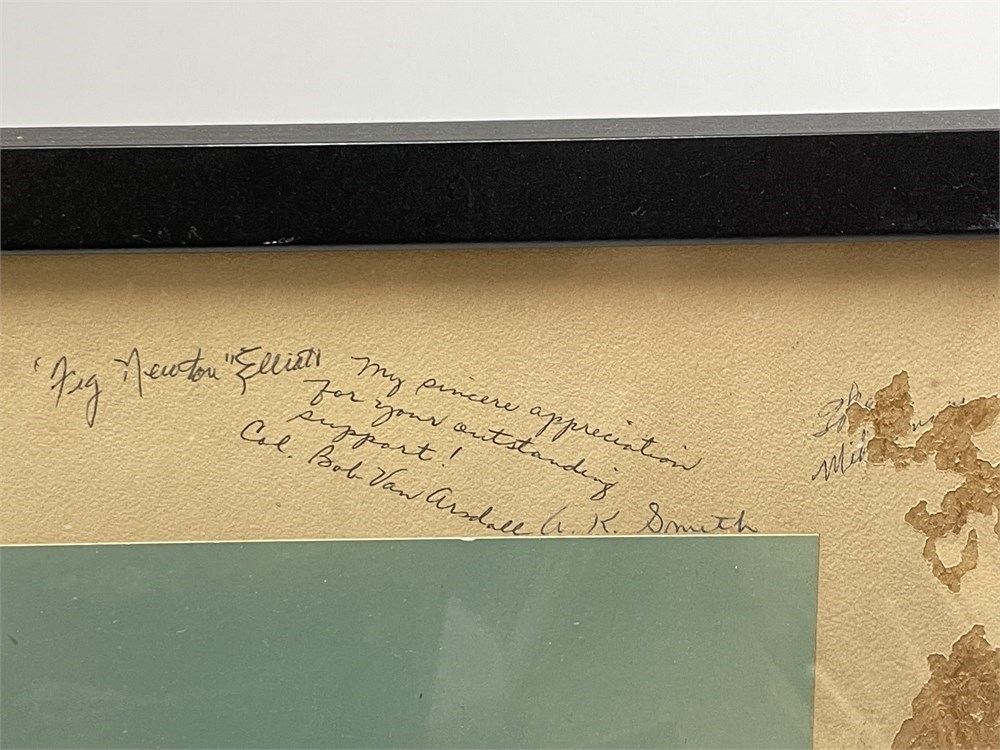 "Fig Newton" Elliott
My sincere appreciation
for your outstanding
support!
Col. Bob Van Arsdall
A. K. Smith